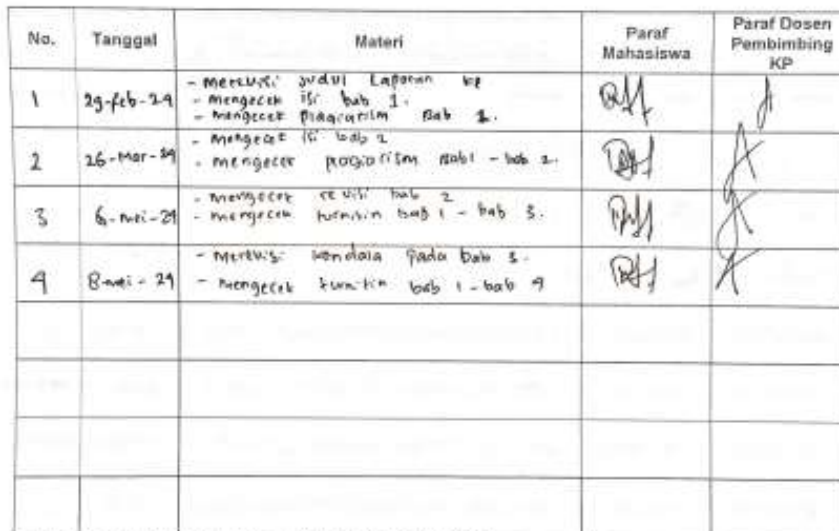 No. Tanggal Materi Paraf Mahasiswa Paraf Dosen Pembimbing KP
1 29-feb-24 - Merevisi judul Laporan KP
- mengecek isi bab 1.
- mengecek plagiarism Bab 1.
2 26-Mar-24 - Mengecek isi bab 2
- mengecek plagiarism Bab 1 - bab 2.
3 6-mei-24 - mengecek revisi bab 2
- mengecek turnitin bab 1 - bab 3.
4 8-mei-24 - Merevisi kendala pada bab 3.
- mengecek turnitin bab 1 - bab 4